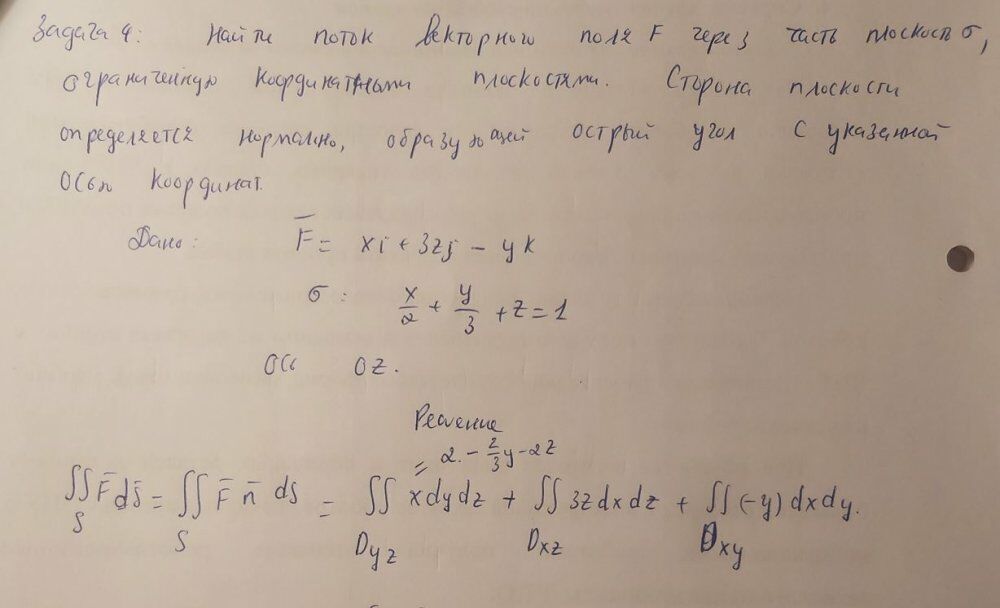 Задача 4: Найти поток векторного поля F через часть плоскости σ,
ограниченную координатными плоскостями. Сторона плоскости
определяется нормалью, образующей острый угол с указанной
осью координат.
Дано: F̅ = xi + 3zj − yk
σ: x/2 + y/3 + z = 1
Ось OZ.
Решение
= 2 − 2/3y − 2z
∬_S F̅ds̅ = ∬_S F̅ n̅ ds = ∬_Dyz x dydz + ∬_Dxz 3z dxdz + ∬_Dxy (−y) dxdy.